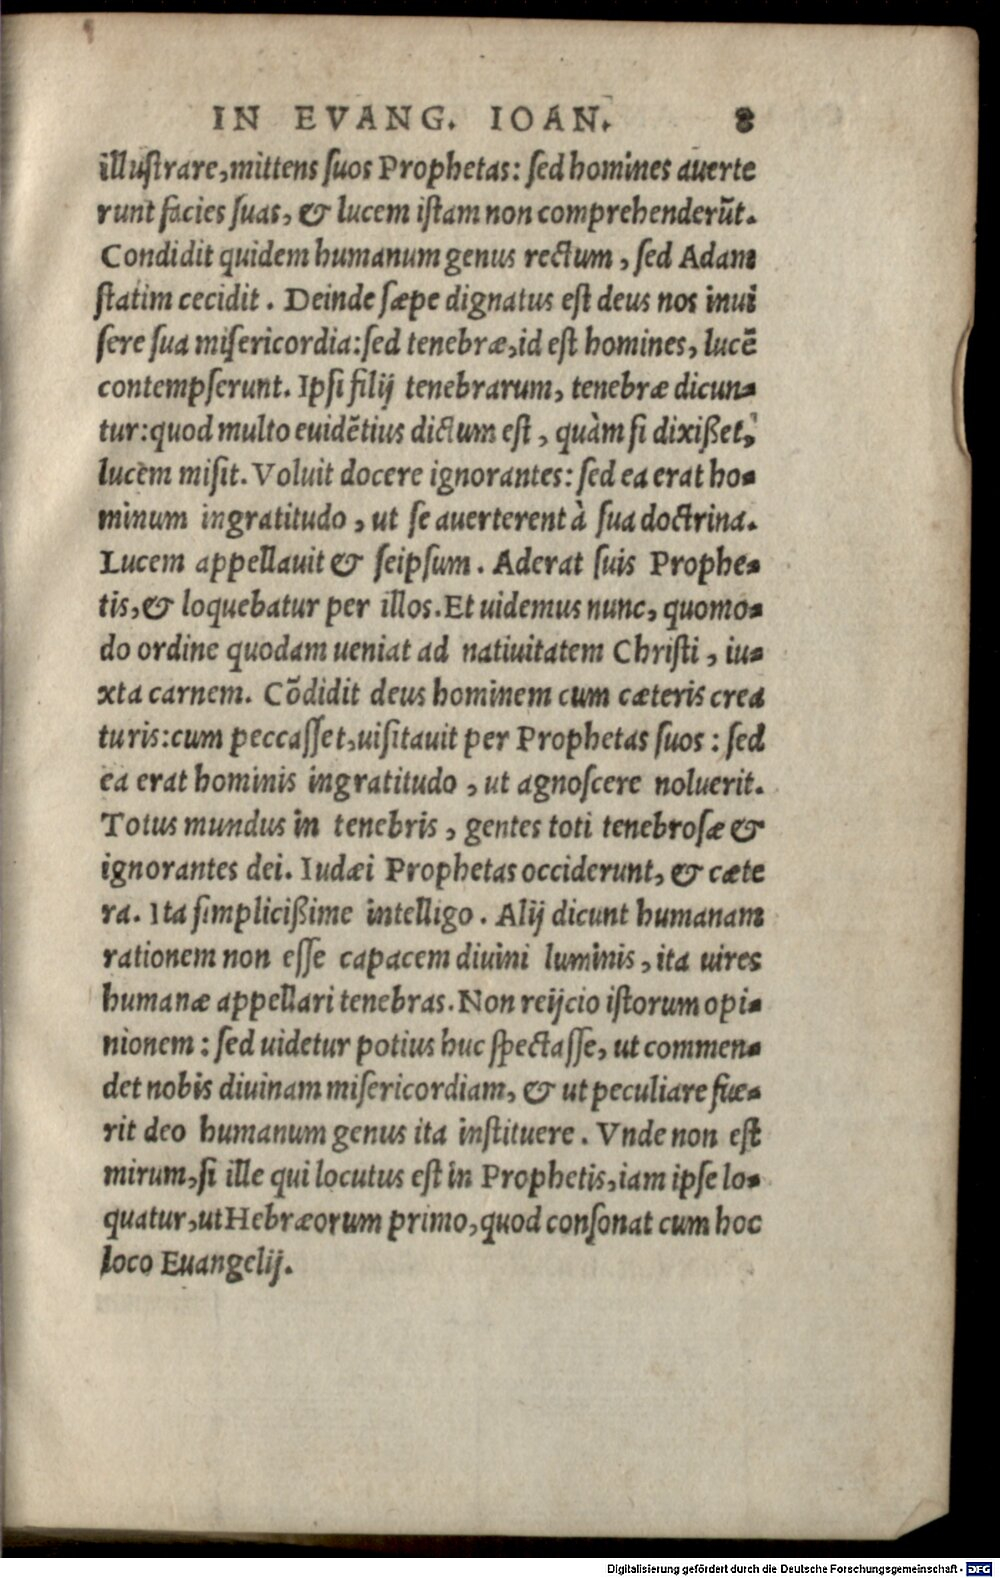 IN EVANG. IOAN. 8
illuſtrare, mittens ſuos Prophetas: ſed homines auerte
runt facies ſuas, & lucem iſtam non comprehenderūt.
Condidit quidem humanum genus rectum, ſed Adam
ſtatim cecidit. Deinde ſæpe dignatus eſt deus nos inui
ſere ſua miſericordia: ſed tenebræ, id eſt homines, lucē
contempſerunt. Ipſi filij tenebrarum, tenebræ dicun-
tur: quod multo euidētius dictum eſt, quàm ſi dixißet,
lucem miſit. Voluit docere ignorantes: ſed ea erat ho-
minum ingratitudo, ut ſe auerterent à ſua doctrina.
Lucem appellauit & ſeipſum. Aderat ſuis Prophe-
tis, & loquebatur per illos. Et uidemus nunc, quomo-
do ordine quodam ueniat ad natiuitatem Chriſti, iu-
xta carnem. Cōdidit deus hominem cum cæteris crea
turis: cum peccaſſet, uiſitauit per Prophetas ſuos: ſed
ea erat hominis ingratitudo, ut agnoſcere noluerit.
Totus mundus in tenebris, gentes toti tenebroſæ &
ignorantes dei. Iudæi Prophetas occiderunt, & cæte
ra. Ita ſimplicißime intelligo. Alij dicunt humanam
rationem non eſſe capacem diuini luminis, ita uires
humanæ appellari tenebras. Non reijcio iſtorum opi-
nionem: ſed uidetur potius huc ſpectaſſe, ut commen-
det nobis diuinam miſericordiam, & ut peculiare fue-
rit deo humanum genus ita inſtituere. Vnde non eſt
mirum, ſi ille qui locutus eſt in Prophetis, iam ipſe lo-
quatur, ut Hebræorum primo, quod conſonat cum hoc
loco Euangelij.
Digitalisierung gefördert durch die Deutsche Forschungsgemeinschaft - DFG